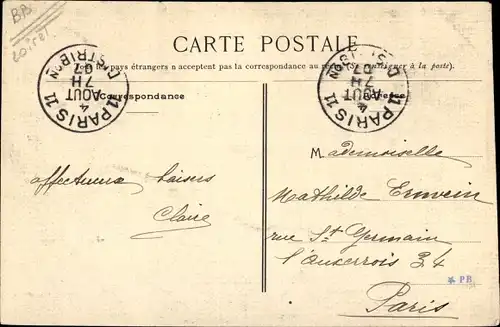 BB
Loiret
CARTE POSTALE
Tous les pays étrangers n'acceptent pas la correspondance au recto (Se renseigner à la poste).
PARIS 11
4
AOUT
7H
07
DISTRIBON
PARIS 11
4
AOUT
7H
07
DISTRIBON
Correspondance
Adresse
affectueux baisers
Claire
Mademoiselle
Mathilde Erwein
rue St Germain
l'Auxerrois 34
Paris
* PB